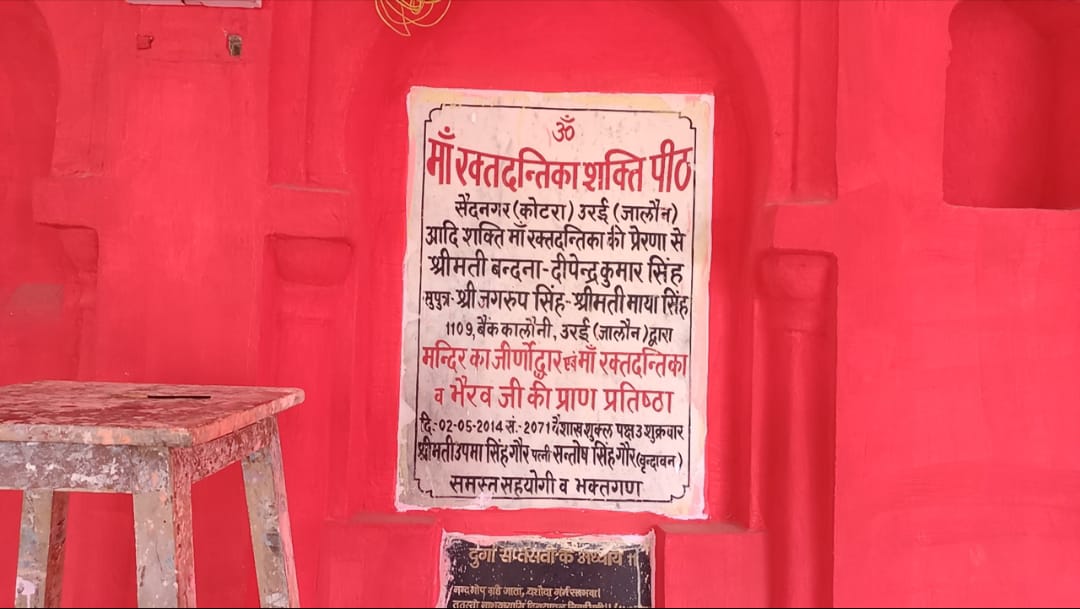 ॐ
माँ रक्तदन्तिका शक्ति पीठ
सैदनगर (कोटरा) उरई (जालौन)
आदि शक्ति माँ रक्तदन्तिका की प्रेरणा से
श्रीमती बन्दना-दीपेन्द्र कुमार सिंह
सुपुत्र-श्री जगरुप सिंह-श्रीमती माया सिंह
1109, बैंक कालौनी, उरई (जालौन) द्वारा
मन्दिर का जीर्णोद्धार एवं माँ रक्तदन्तिका
व भैरव जी की प्राण प्रतिष्ठा
दि.-02-05-2014 सं.-2071 वैशाख शुक्ल पक्ष 3 शुक्रवार
श्रीमती उपमा सिंह गौर पत्नी सन्तोष सिंह गौर (बृन्दावन)
समस्त सहयोगी व भक्तगण
दुर्गा सप्तसती के अध्याय
नन्द गोप गृहे जाता, यशोदा गर्भ सम्भवा।